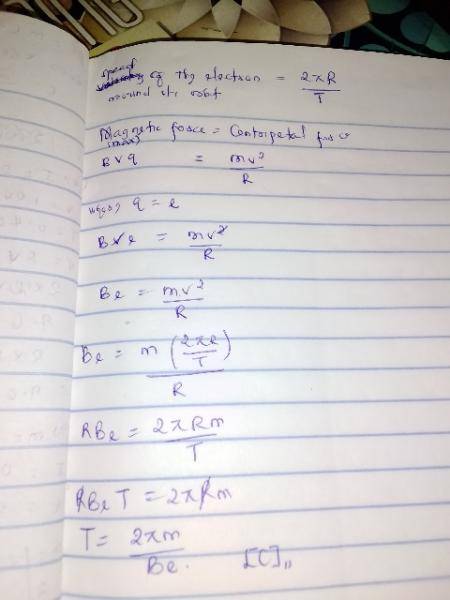 speed
of the electron = 2πR/T
around its orbit
Magnetic force = Centripetal force
(max)
BVq = mv²/R
q = e
BVe = mv²/R
Be = mv²/R
Be = m(2πR/T)/R
RBe = 2πRm/T
RBeT = 2πRm
T = 2πm/Be. [C]"